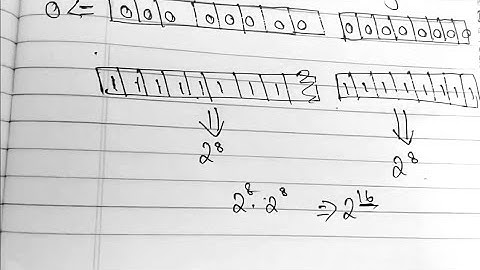 0 <= 0 0 0 0 0 0 0 0 0 0 0 0 0 0 0 0
1 1 1 1 1 1 1 1 1 1 1 1 1 1 1
⇓ ⇓
2⁸ 2⁸
2⁸ · 2⁸ ⇒ 2¹⁶